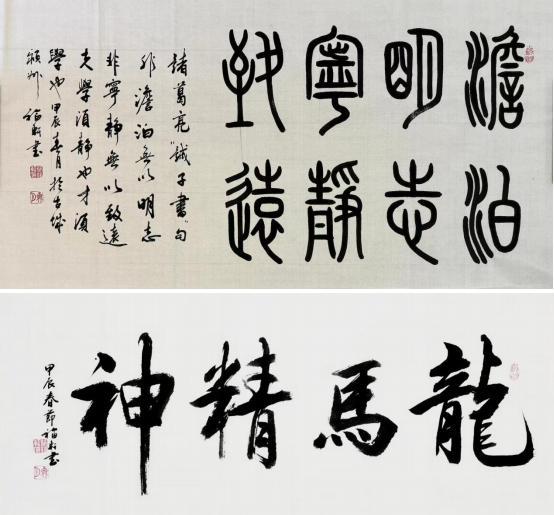 澹泊
明志
寧靜
致遠
諸葛亮"誡子書"句
非澹泊無以明志
非寧靜無以致遠
夫學須靜也才須
學也甲辰春月於古城
潁州 書
龍馬精神
甲辰春節 書